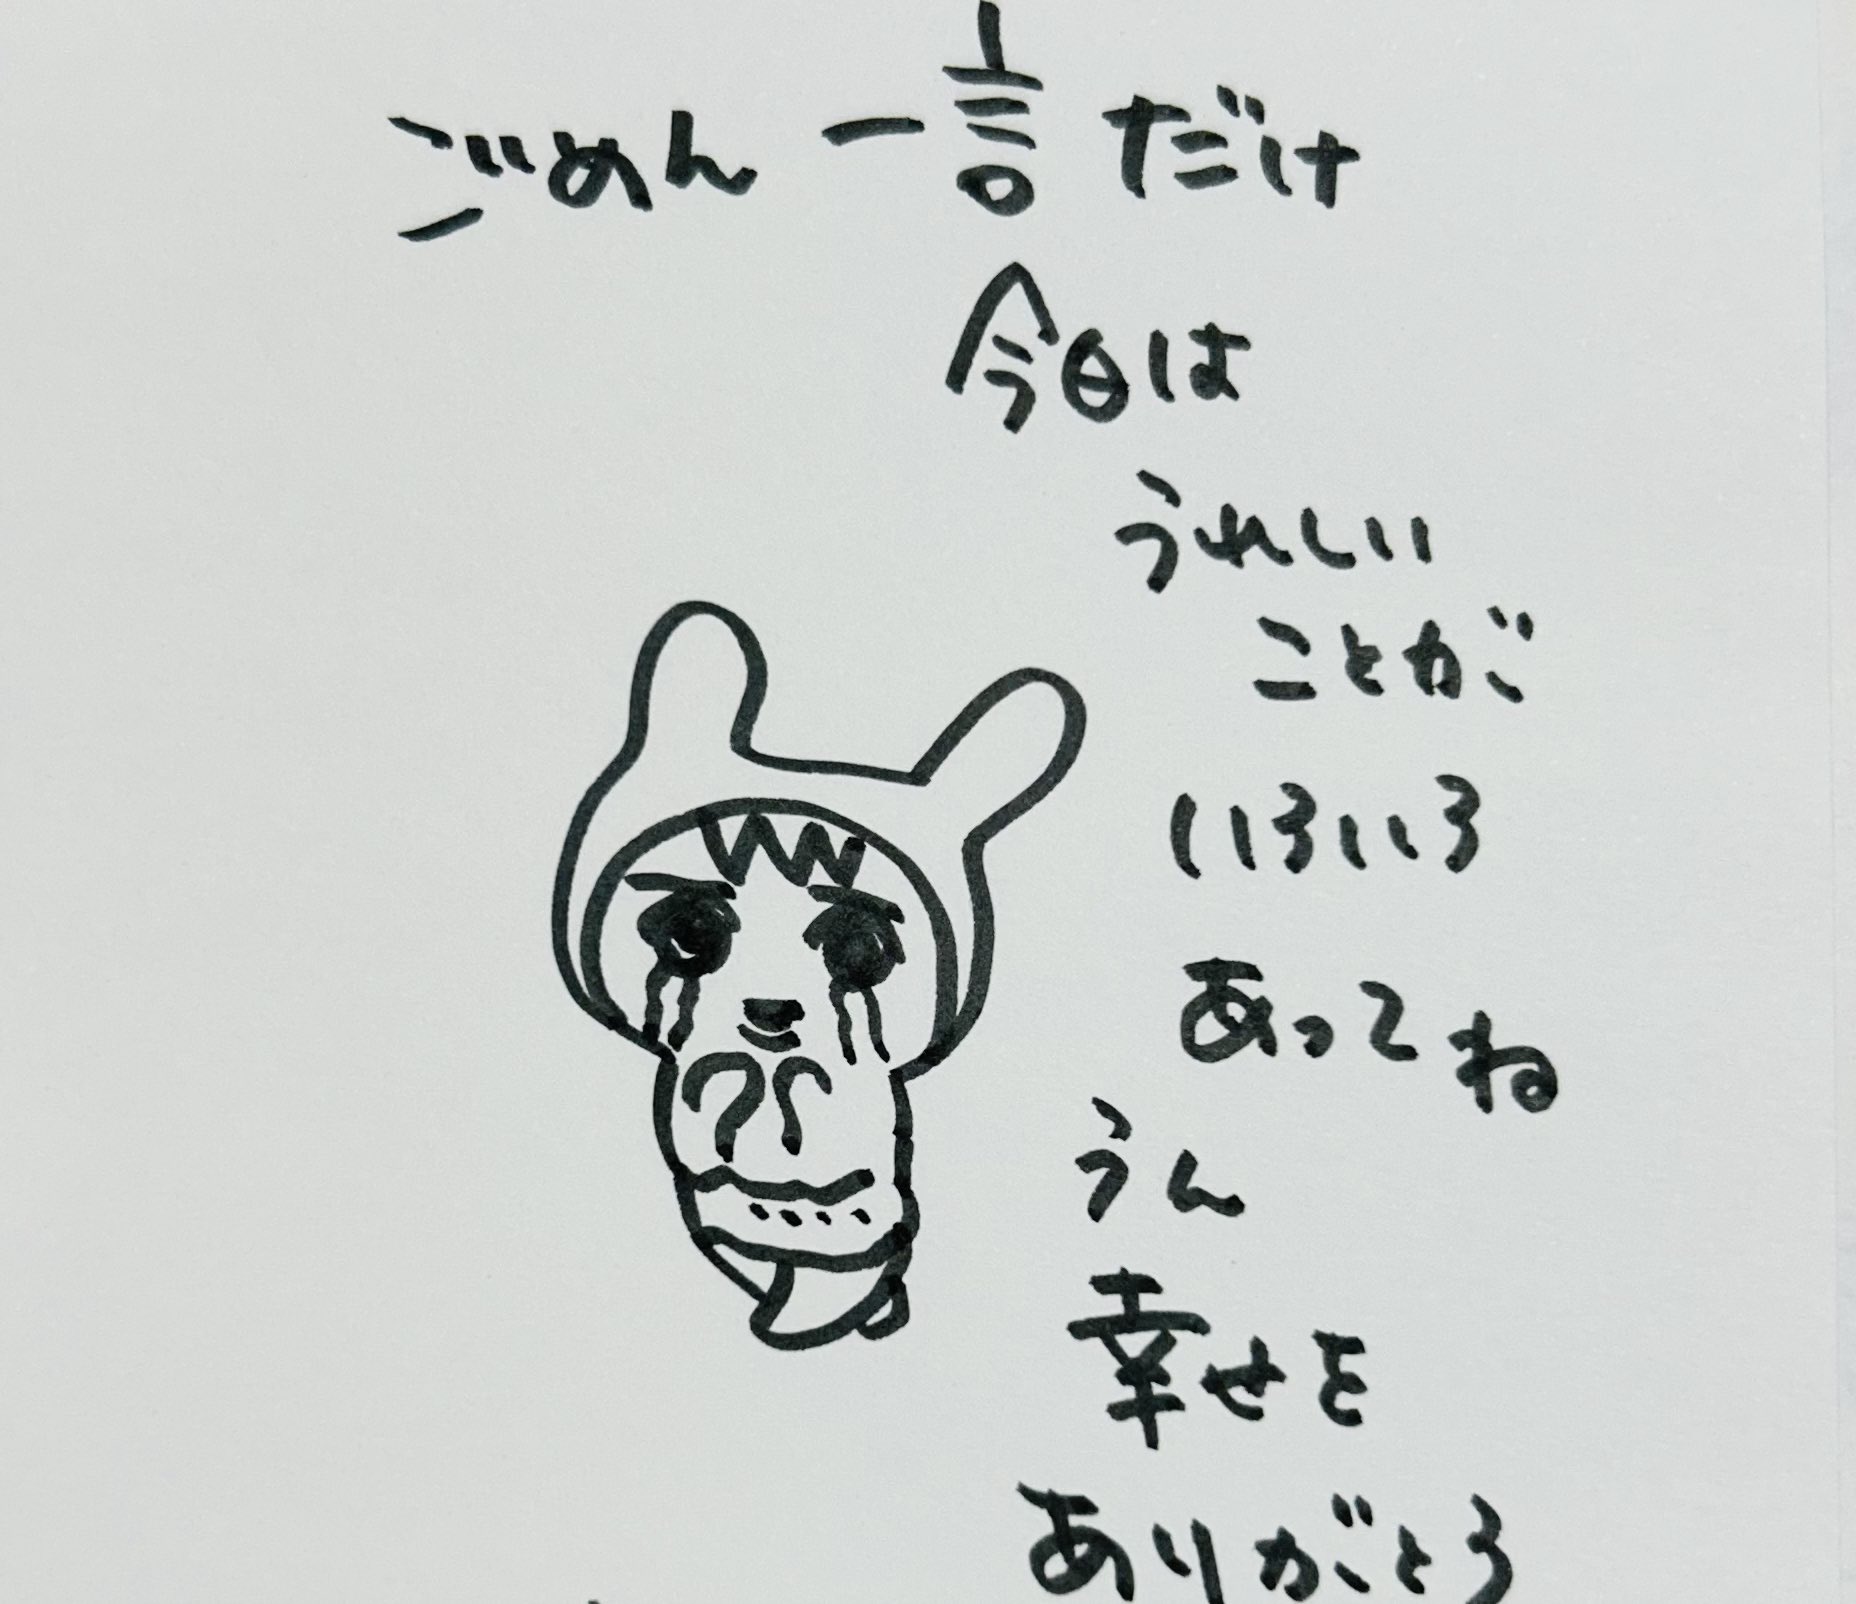 ごめん 一言だけ
今日は
うれしい
ことが
いろいろ
あってね
うん
幸せを
ありがとう